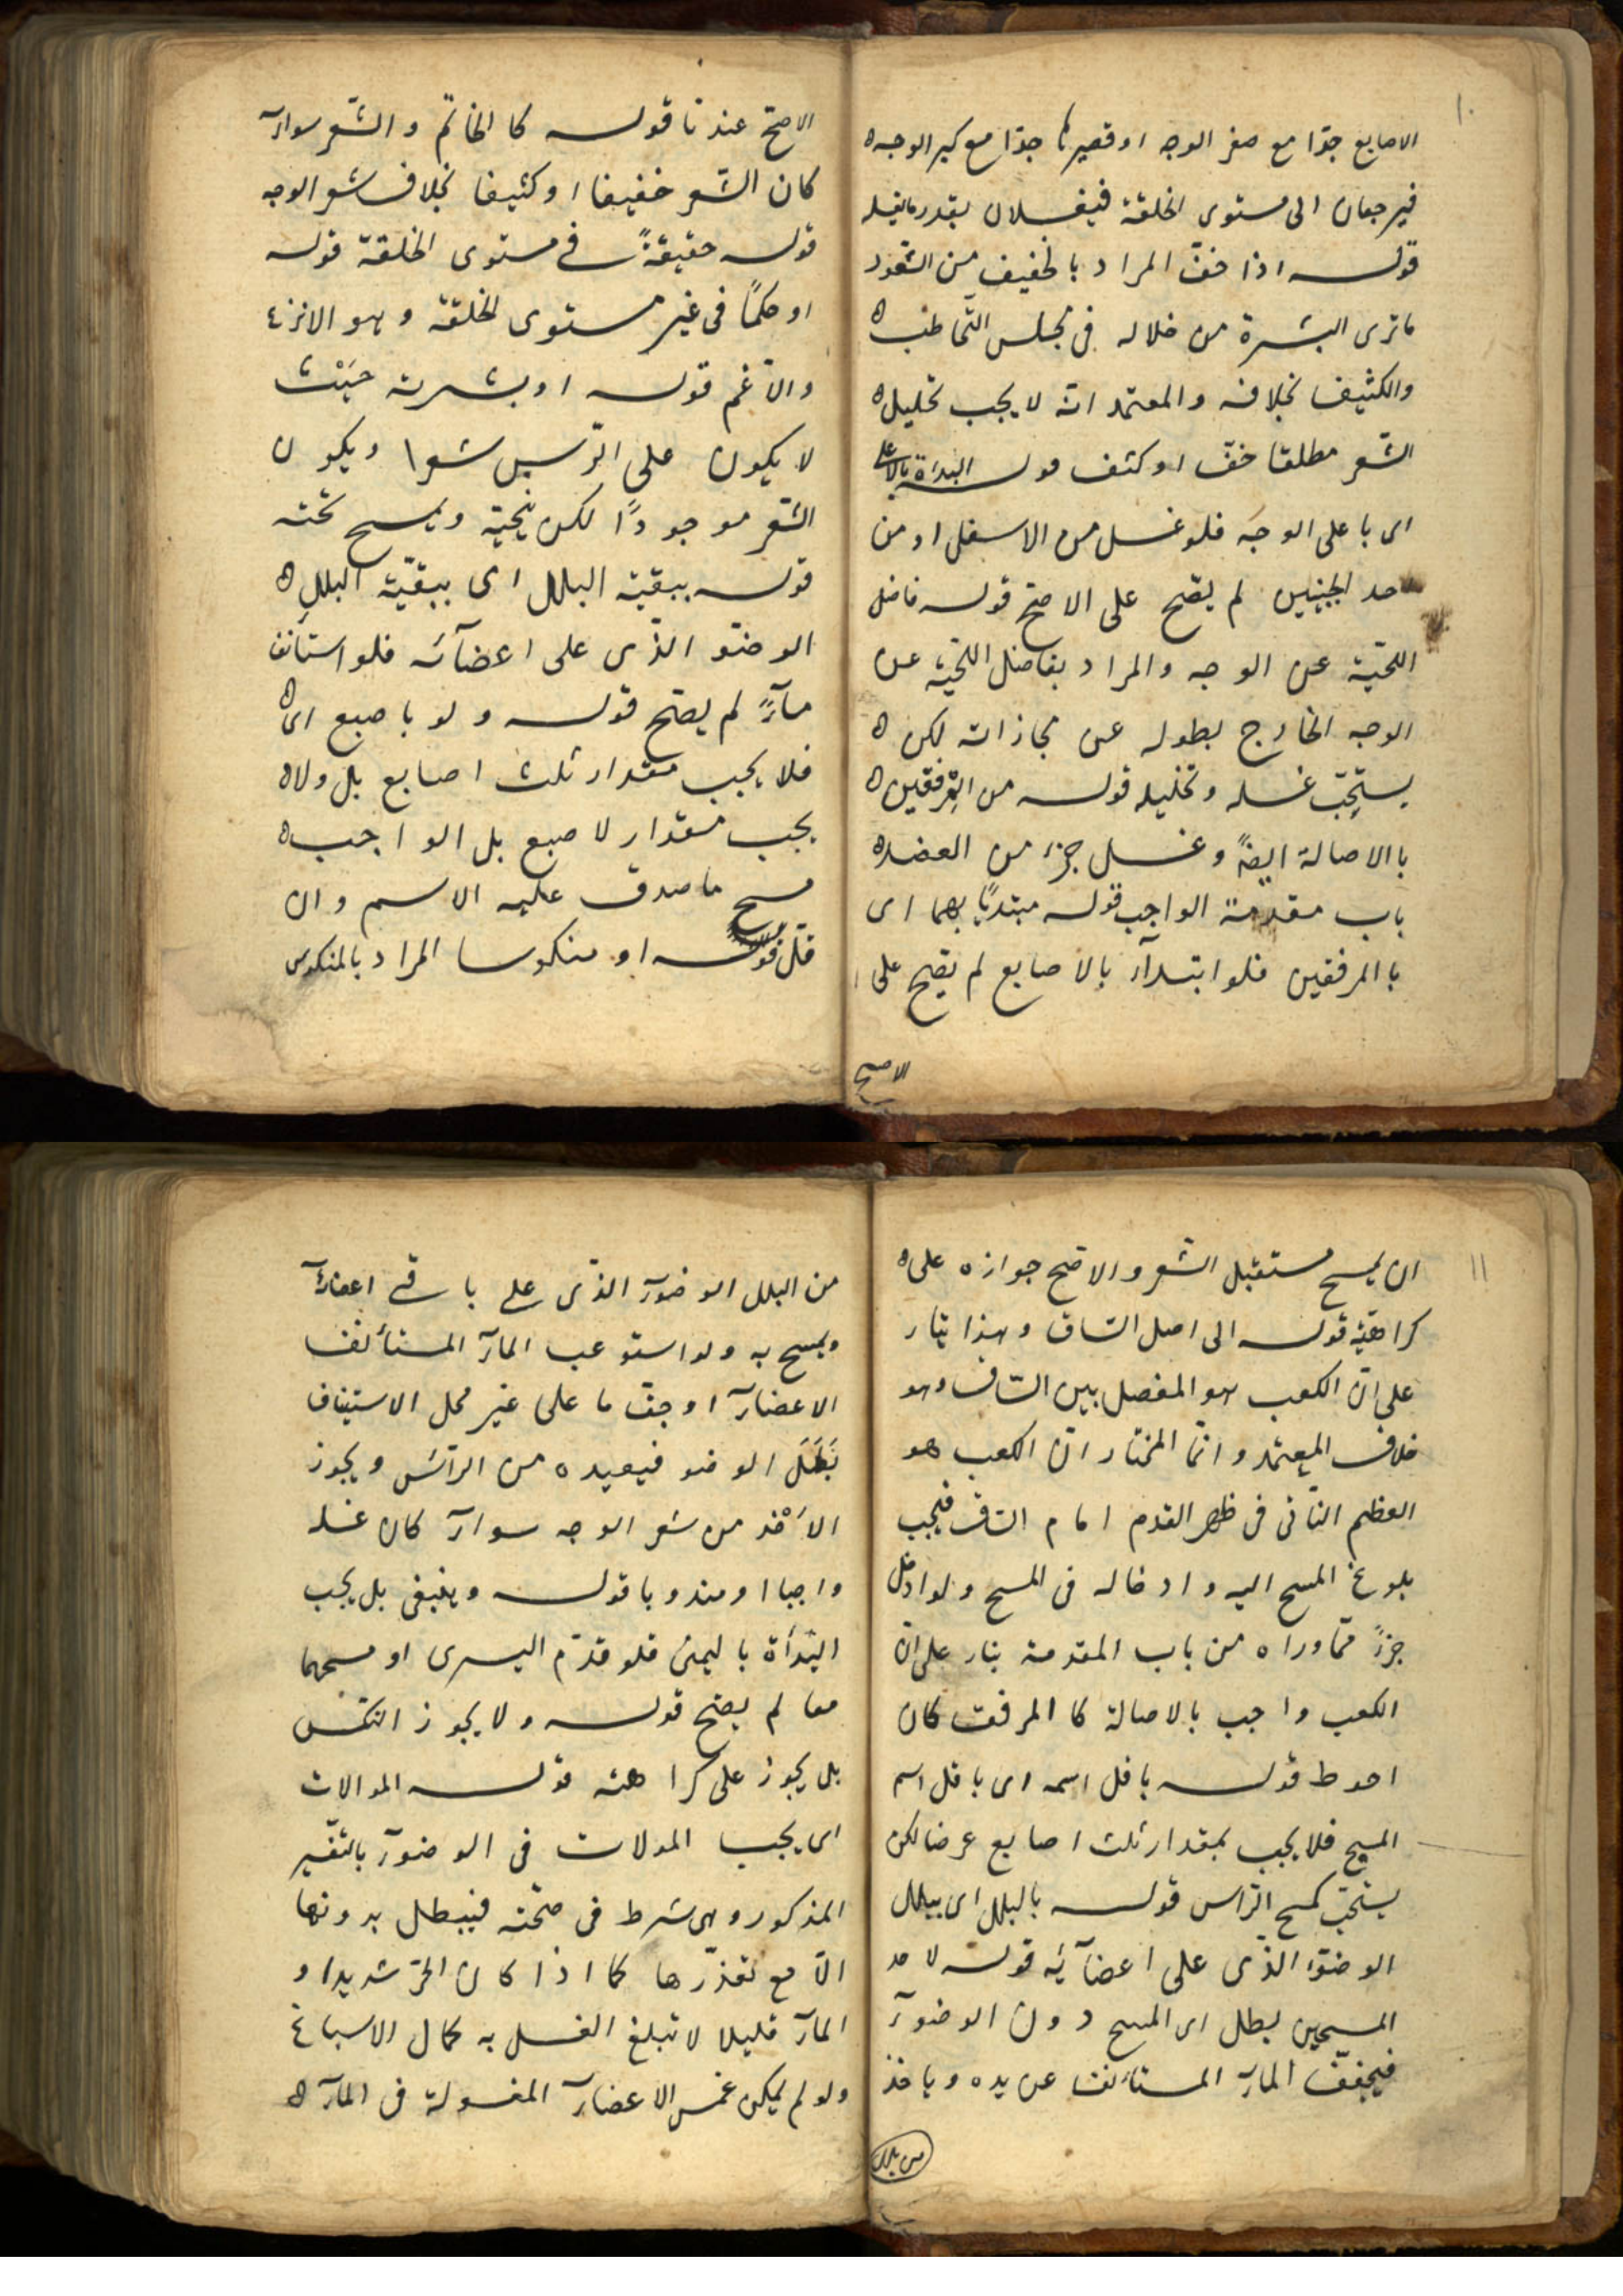 ١٠
الاصابع جدّا مع صغر الوجه او قصيرها جدّا مع كبر الوجه
فيرجعان الى مستوى الخلقة فيغسلان بقدر ما يغسله
قوله اذا خفّ المراد بالخفيف من الشعور
ما ترى البشرة من خلاله فى مجلس التّخاطب
والكثيف بخلافه والمعتمد انه لا يجب تخليل
الشّعر مطلقا خفّ او كثف قوله البداءة بالاعلى
اى باعلى الوجه فلو غسل من الاسفل او من
احد الجبينين لم يصّح على الاصّح قوله فاضل
اللّحية عن الوجه والمراد بفاضل اللّحية عن
الوجه الخارج بطوله عن مجازاته لكن
يستحّب غسله وتخليله قوله من المِرفقين
با الاصالة ايضً وغسل جزء من العضد
باب مقدمة الواجب قوله مبتديًا بهما اى
با المرفقين فلو ابتدآء بالاصابع لم يصّح على
الاصح
الاصّح عندنا قوله كا الخاتم و الشّعر سوآء
كان الشّعر خفيفا او كثيفا بخلاف شعر الوجه
قوله حقيقةً فى مستوى الخلقة قوله
او حكمًا فى غير مستوى الخلقة و هو الانزع
والاغم قوله او بشرته حَيْث
لا يكون على الرّأس شعرا ويكون
الشّعر موجودًا لكن ينحّية ويمسح تحته
قوله ببقية البلل اى ببقيّة البللِ
الوضوّ الذّى على اعضآئه فلو استانف
مآءً لم يصّح قوله و لو باصبع اى
فلا يجب مقدار ثلث اصابع بل ولا
يجب مقدار لا صبع بل الواجب
مسح ما صدق عليه الاسم و ان
قلّ قوله او منكوسا المراد بالمنكوس
١١
ان يمسح مستقبل الشّعر و الاصّح جوازه على
كراهيّة قوله الى اصل السّاق و هذا بنآء
على انّ الكعب هو المفصل بين السّاق و هو
خلاف المعتمد و انّما المختار انّ الكعب هو
العظم النّاتى فى ظهر القدم امام السّاق فيجب
بلوغ المسح اليه و ادخاله فى المسح و لو ادخل
جزءً ممّا وراه من باب المقدمة بناء على انّ
الكعب واجب بالاصالة كا المرفق كان
احوط قوله باقل اسمه اى باقل اسم
المسح فلا يجب بمقدار ثلث اصابع عرضا لكن
يستحّب كمسح الرّاس قوله بالبلل اى ببلل
الوضوّء الذّى على اعضآئه قوله لاحد
المسحين بطل اى المسح دون الوضوء
فيجفّف المآء المستأنف عن يده و ياخذ
من بلل
من البلل الوضوء الذّى على باقى اعضائه
ويمسح به و لو استوعب المآء المستأنف
الاعضآء او جفّ ما على غير محل الاستيناف
بَطَلَ الوضو فيعيده من الرّأس و يجوز
الاَخْذ من شعر الوجه سوآء كان غسله
واجبا او مندوبا قوله و ينبغى بل يجب
البّدأة باليمنى فلو قدّم اليسرى او مسحهما
معا لم يصّح قوله و لا يجوز النّكس
بل يجوز على كراهته قوله الموالات
اى يجب المولات فى الوضوء بالتّفسير
المذكور و هى شرط فى صحّته فيبطل بدونها
الّا مع تعذّرها كما اذا كان الحرّ شديدا و
المآء قليلا لا تبلغ الغسل به كمال الاسباغ
ولو لم يمكن غمس الاعضآء المغسولة فى المآء